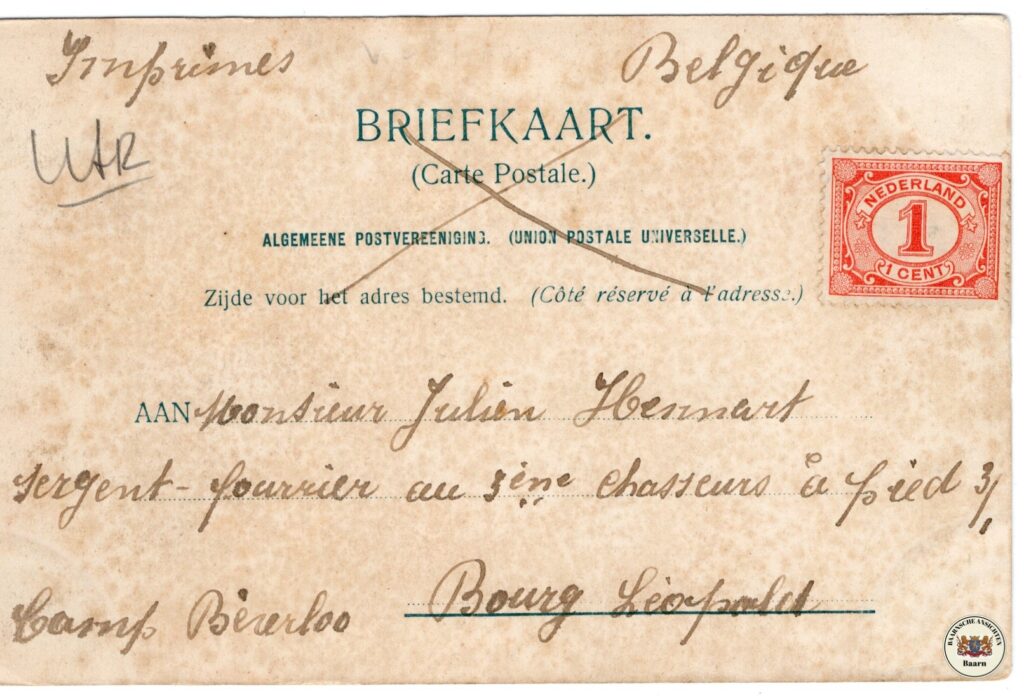 Imprimes Belgique
UtR
BRIEFKAART.
(Carte Postale.)
NEDERLAND
1
1 CENT
ALGEMEENE POSTVEREENIGING. (UNION POSTALE UNIVERSELLE.)
Zijde voor het adres bestemd. (Côté réservé à l'adresse.)
AAN Monsieur Julien Hennart
sergent-fourrier au 3ème chasseurs à pied 3/1
Bourg Léopold
Camp Béverloo
BAARNSCHE ANSICHTEN
Baarn